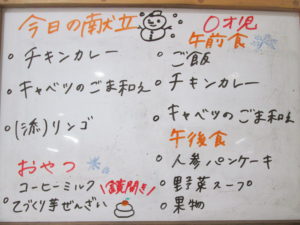 今日の献立
・チキンカレー
・キャベツのごま和え
・(流)リンゴ
おやつ
コーヒーミルク
\鏡開き/
・てづくり芋ぜんざい
0才児
午前食
・ご飯
・チキンカレー
・キャベツのごま和え
午後食
・人参パンケーキ
・野菜スープ
・果物